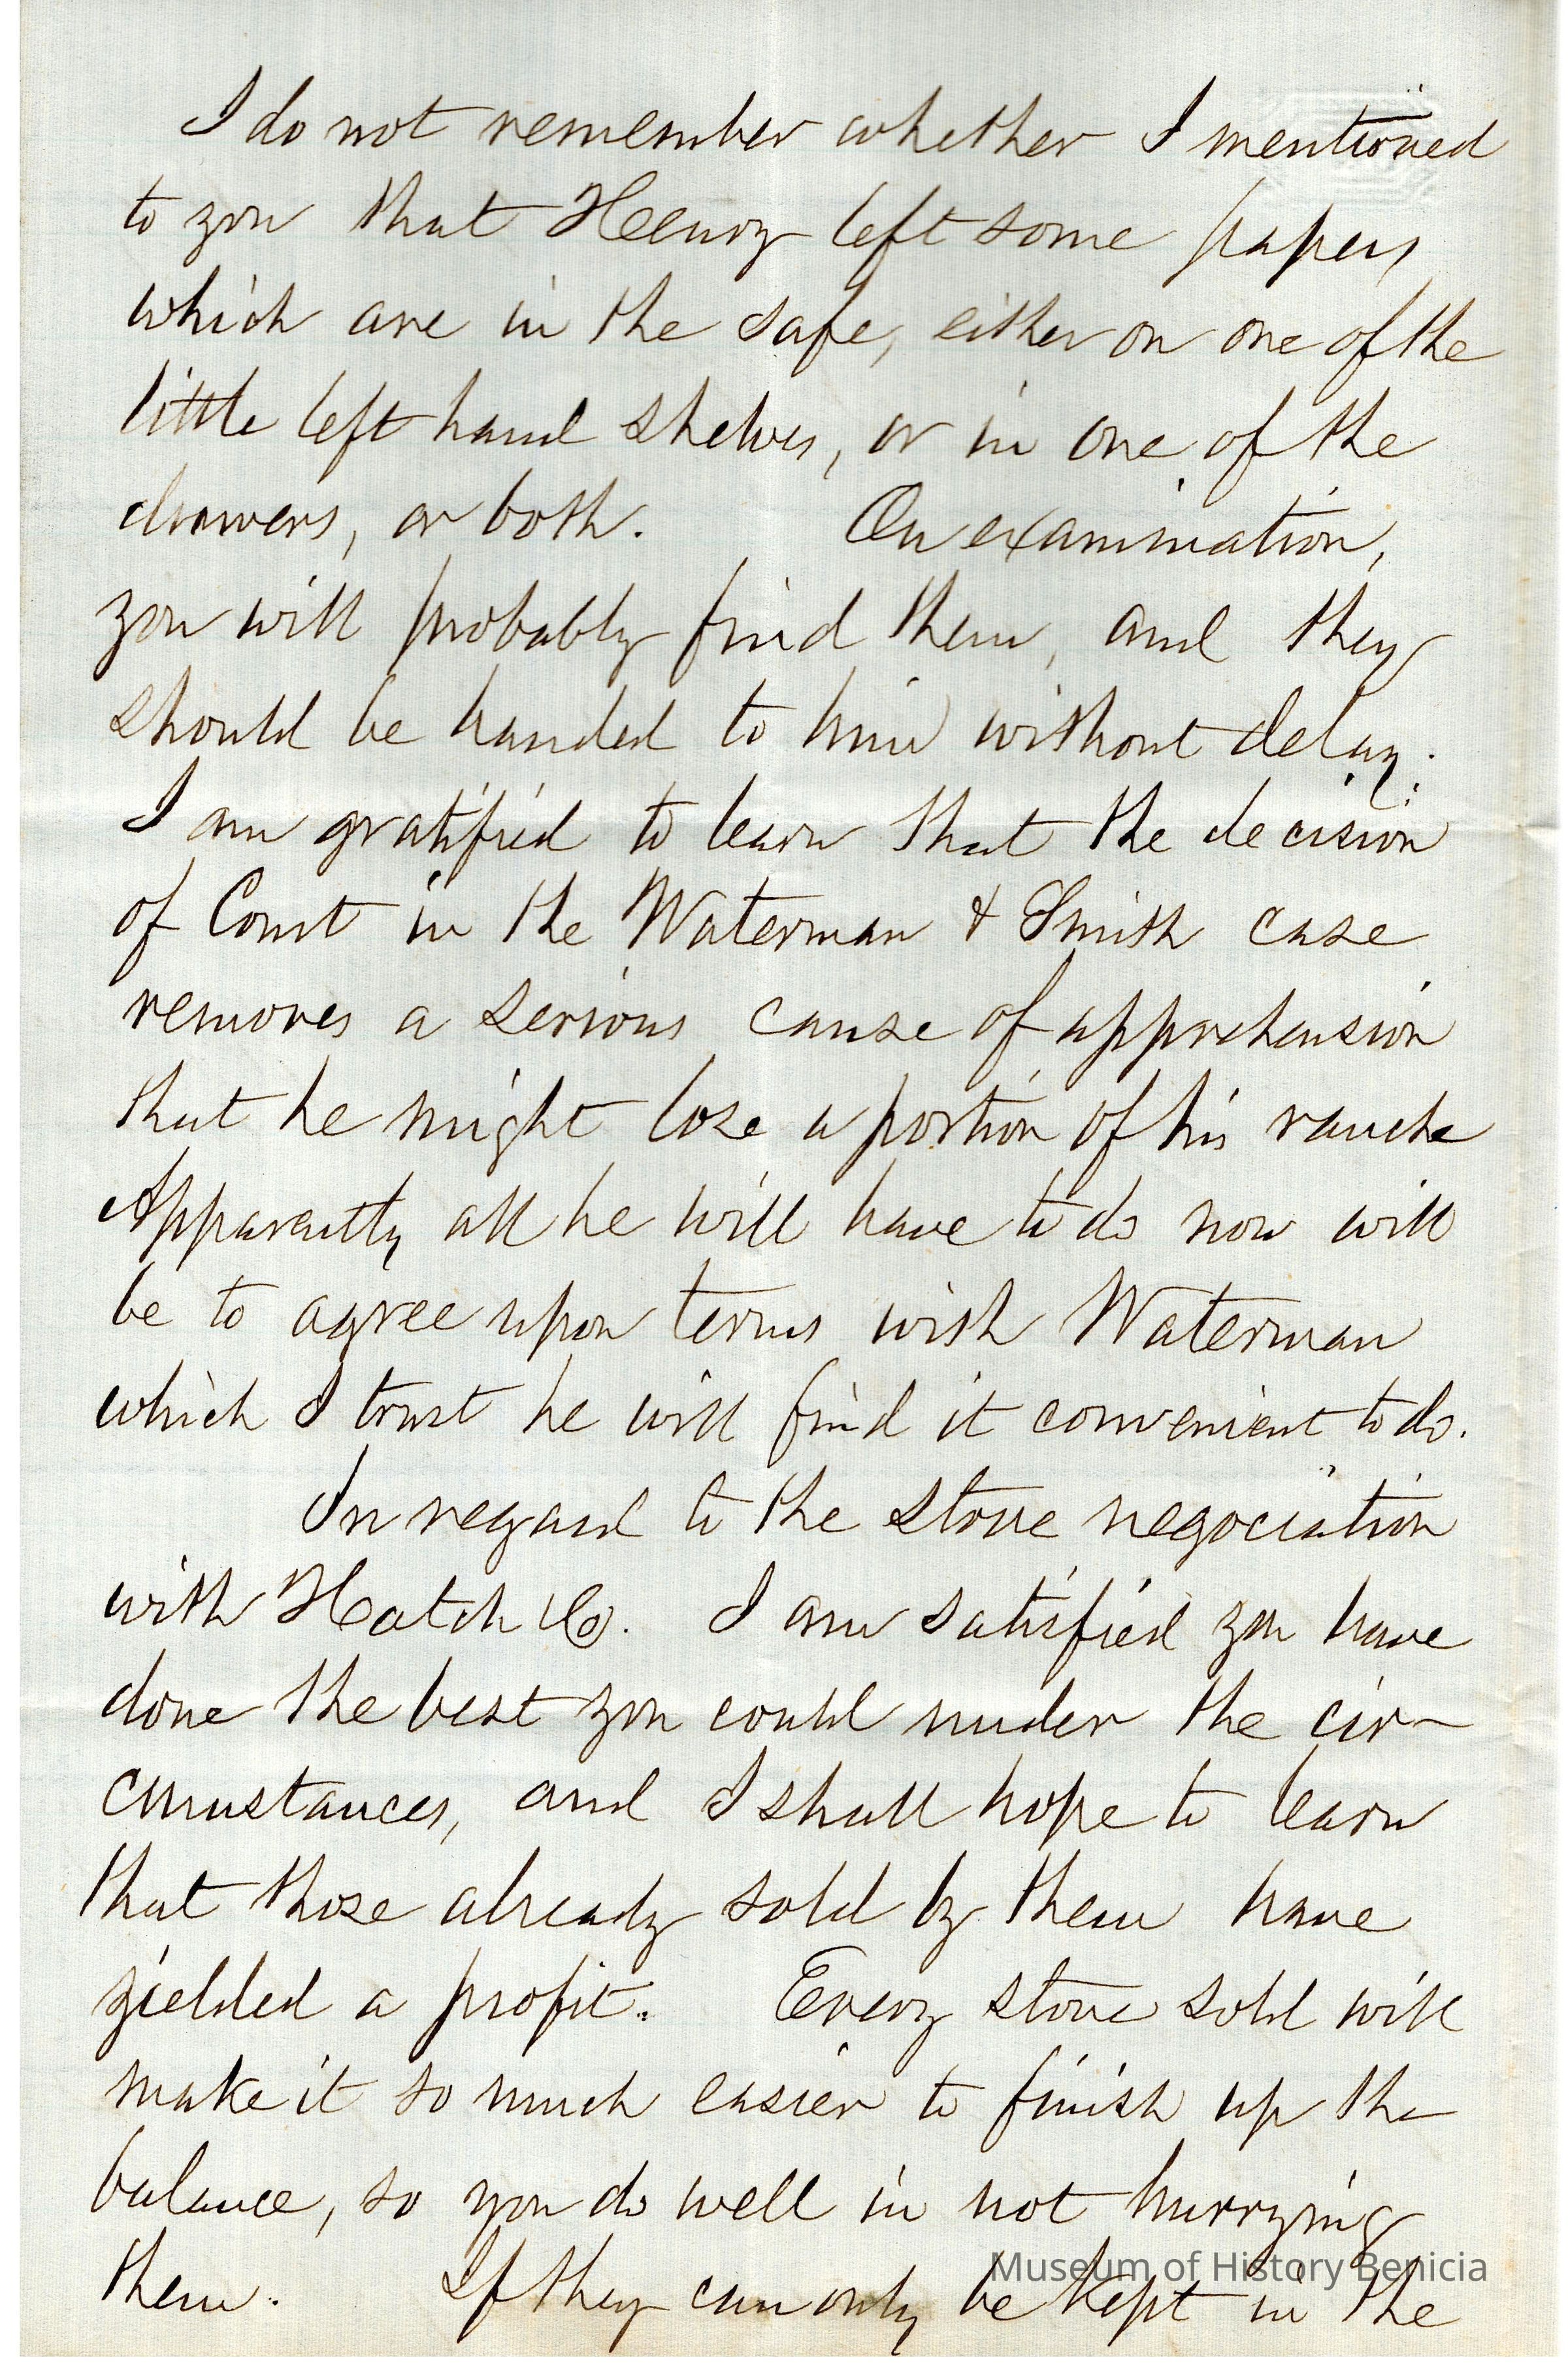 I do not remember whether I mentioned
to you that Henry left some papers
which are in the safe, either on one of the
little left hand shelves, or in one of the
drawers, or both. On examination,
you will probably find them, and they
should be handed to him without delay.
I am gratified to learn that the decision
of Court in the Waterman & Smith case
removes a serious cause of apprehension
that he might lose a portion of his ranche
Apparently all he will have to do now will
be to agree upon terms with Waterman
which I trust he will find it convenient to do.
In regard to the stove negociation
with Hatch & Co. I am satisfied you have
done the best you could under the cir-
cumstances, and I shall hope to learn
that those already sold by them have
yielded a profit. Every stove sold will
make it so much easier to finish up the
balance, so you do well in not hurrying
them. If they can only be kept in the
Museum of History Benicia